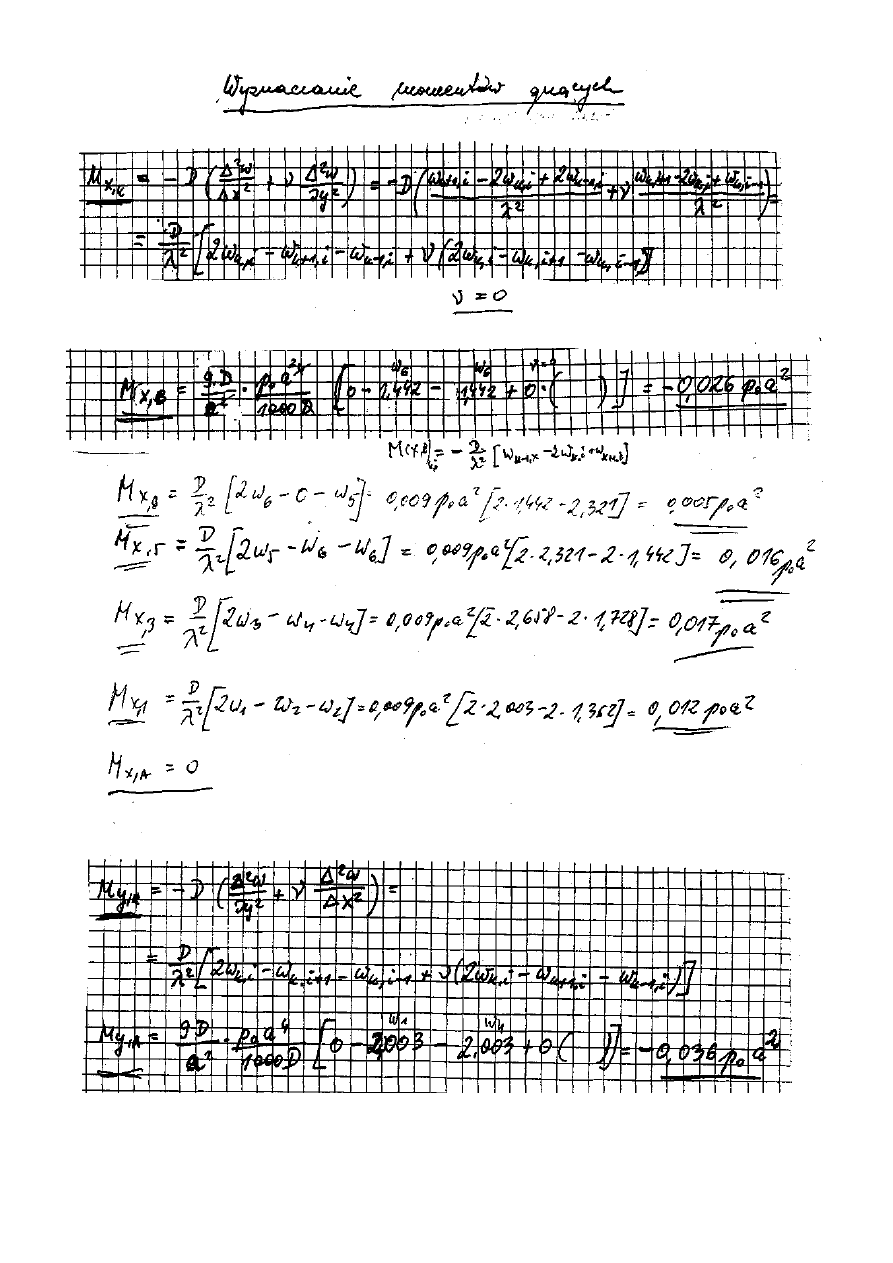 Wyznaczanie momentów gnących
M_{x,k} = - D ( Δ²w/Δx² + ν Δ²w/λy² ) = - D ( (w_{k+1,i} - 2w_{k,i} + 2w_{k-1,i})/λ² + ν (w_{k,i+1} - 2w_{k,i} + w_{k,i-1})/λ² ) =
= D/λ² [ 2w_{k,i} - w_{k+1,i} - w_{k-1,i} + ν ( 2w_{k,i} - w_{k,i+1} - w_{k,i-1} ) ]
ν = 0
w6 w6 ν=0
M_{x,B} = 9·D/a² · p₀a⁴/1000D [ 0 - 1,442 - 1,442 + 0·( ) ] = - 0,026 p₀a²
= - D/λ² [ ]
M_{x,8} = D/λ² [ 2w6 - 0 - w5 ] · 0,009 p₀a² [ 2·1,442 - 2,321 ] = 0,005 p₀a²
M_{x,5} = D/λ² [ 2w5 - w6 - w6 ] = 0,009 p₀a² [ 2·2,321 - 2·1,442 ] = 0,016 p₀a²
M_{x,3} = D/λ² [ 2w3 - w4 - w4 ] = 0,009 p₀a² [ 2·2,658 - 2·1,728 ] = 0,017 p₀a²
M_{x,1} = D/λ² [ 2w1 - w2 - w2 ] = 0,009 p₀a² [ 2·2,003 - 2·1,352 ] = 0,012 p₀a²
M_{x,A} = 0
M_{y,k} = - D ( Δ²w/λy² + ν Δ²w/Δx² ) =
= D/λ² [ 2w_{k,i} - w_{k,i+1} - w_{k,i-1} + ν ( 2w_{k,i} - w_{k+1,i} - w_{k-1,i} ) ]
w1 w1
M_{y,A} = 9D/a² · p₀a⁴/1000D [ 0 - 2,003 - 2,003 + 0 ( ) ] = - 0,036 p₀a²